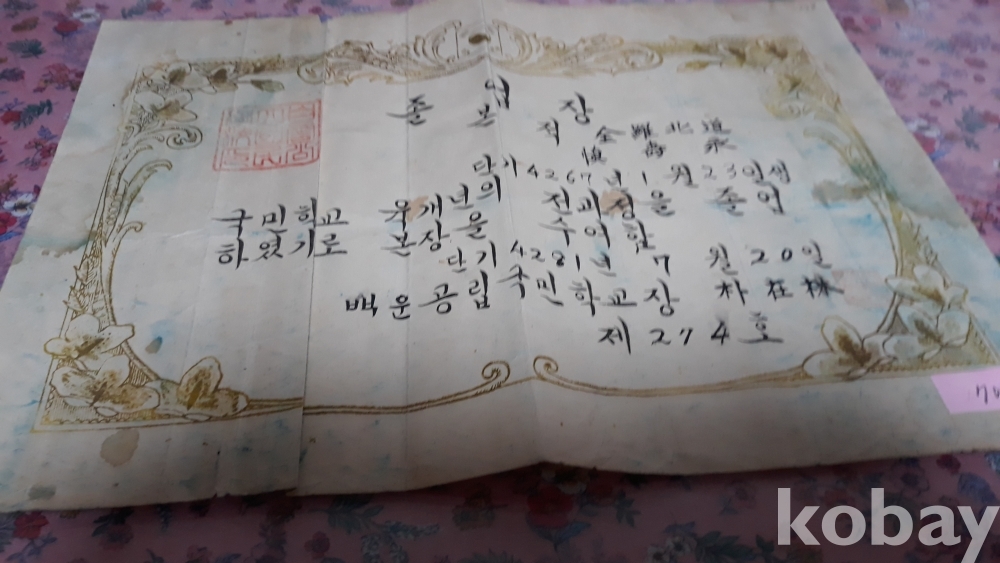 졸 업 장
본 적 全 羅 北 道
단기 4267년 1월 23일생
국민학교 육개년의 전과정을 졸업
하였기로 본장을 수여함
단기 4281년 7월 20일
백운공립국민학교장 朴在林
제 274 호
kobay